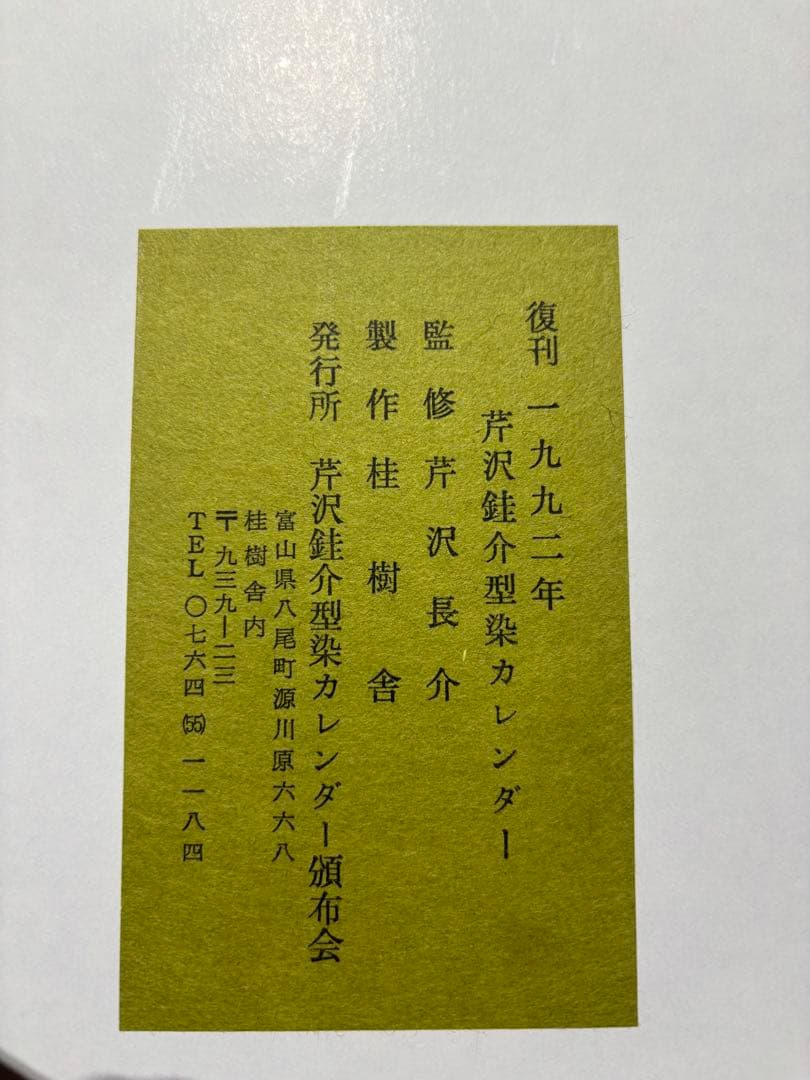 復刊 一九九二年
芹沢銈介型染カレンダー
監修 芹沢長介
製作 桂樹舎
発行所 芹沢銈介型染カレンダー頒布会
富山県八尾町源川原六六八
桂樹舎内
〒九三九ー二三
TEL〇七六四(55)一一八四